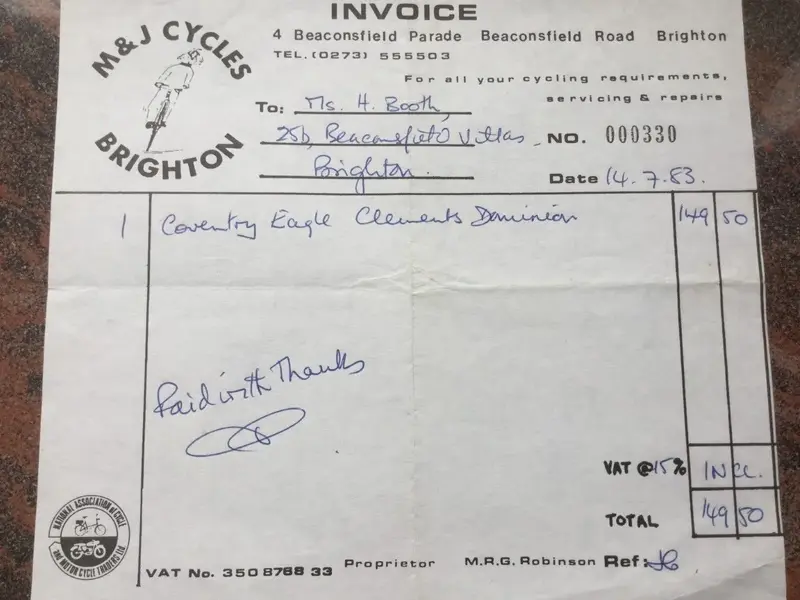 INVOICE
M&J CYCLES
BRIGHTON
4 Beaconsfield Parade Beaconsfield Road Brighton
TEL. (0273) 555503
For all your cycling requirements,
servicing & repairs
To: Ms. H. Booth,
25b, Beaconsfield Villas, NO. 000330
Brighton.
Date 14.7.83.
1 Coventry Eagle Clements Dominion 149 50
Paid with Thanks
VAT @ 15% INCL.
TOTAL 149 50
NATIONAL ASSOCIATION of CYCLE
AND MOTOR CYCLE TRADERS Ltd
VAT No. 350 8768 33 Proprietor M.R.G. Robinson Ref: